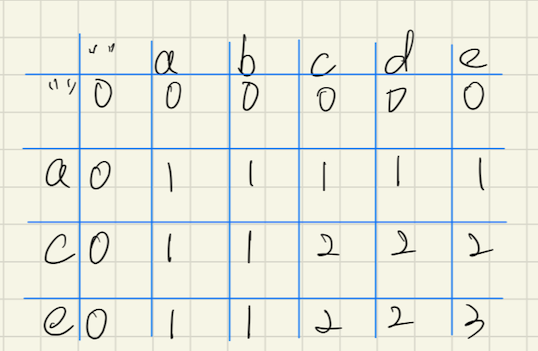 "" a b c d e
"" 0 0 0 0 0 0
a 0 1 1 1 1 1
c 0 1 1 2 2 2
e 0 1 1 2 2 3